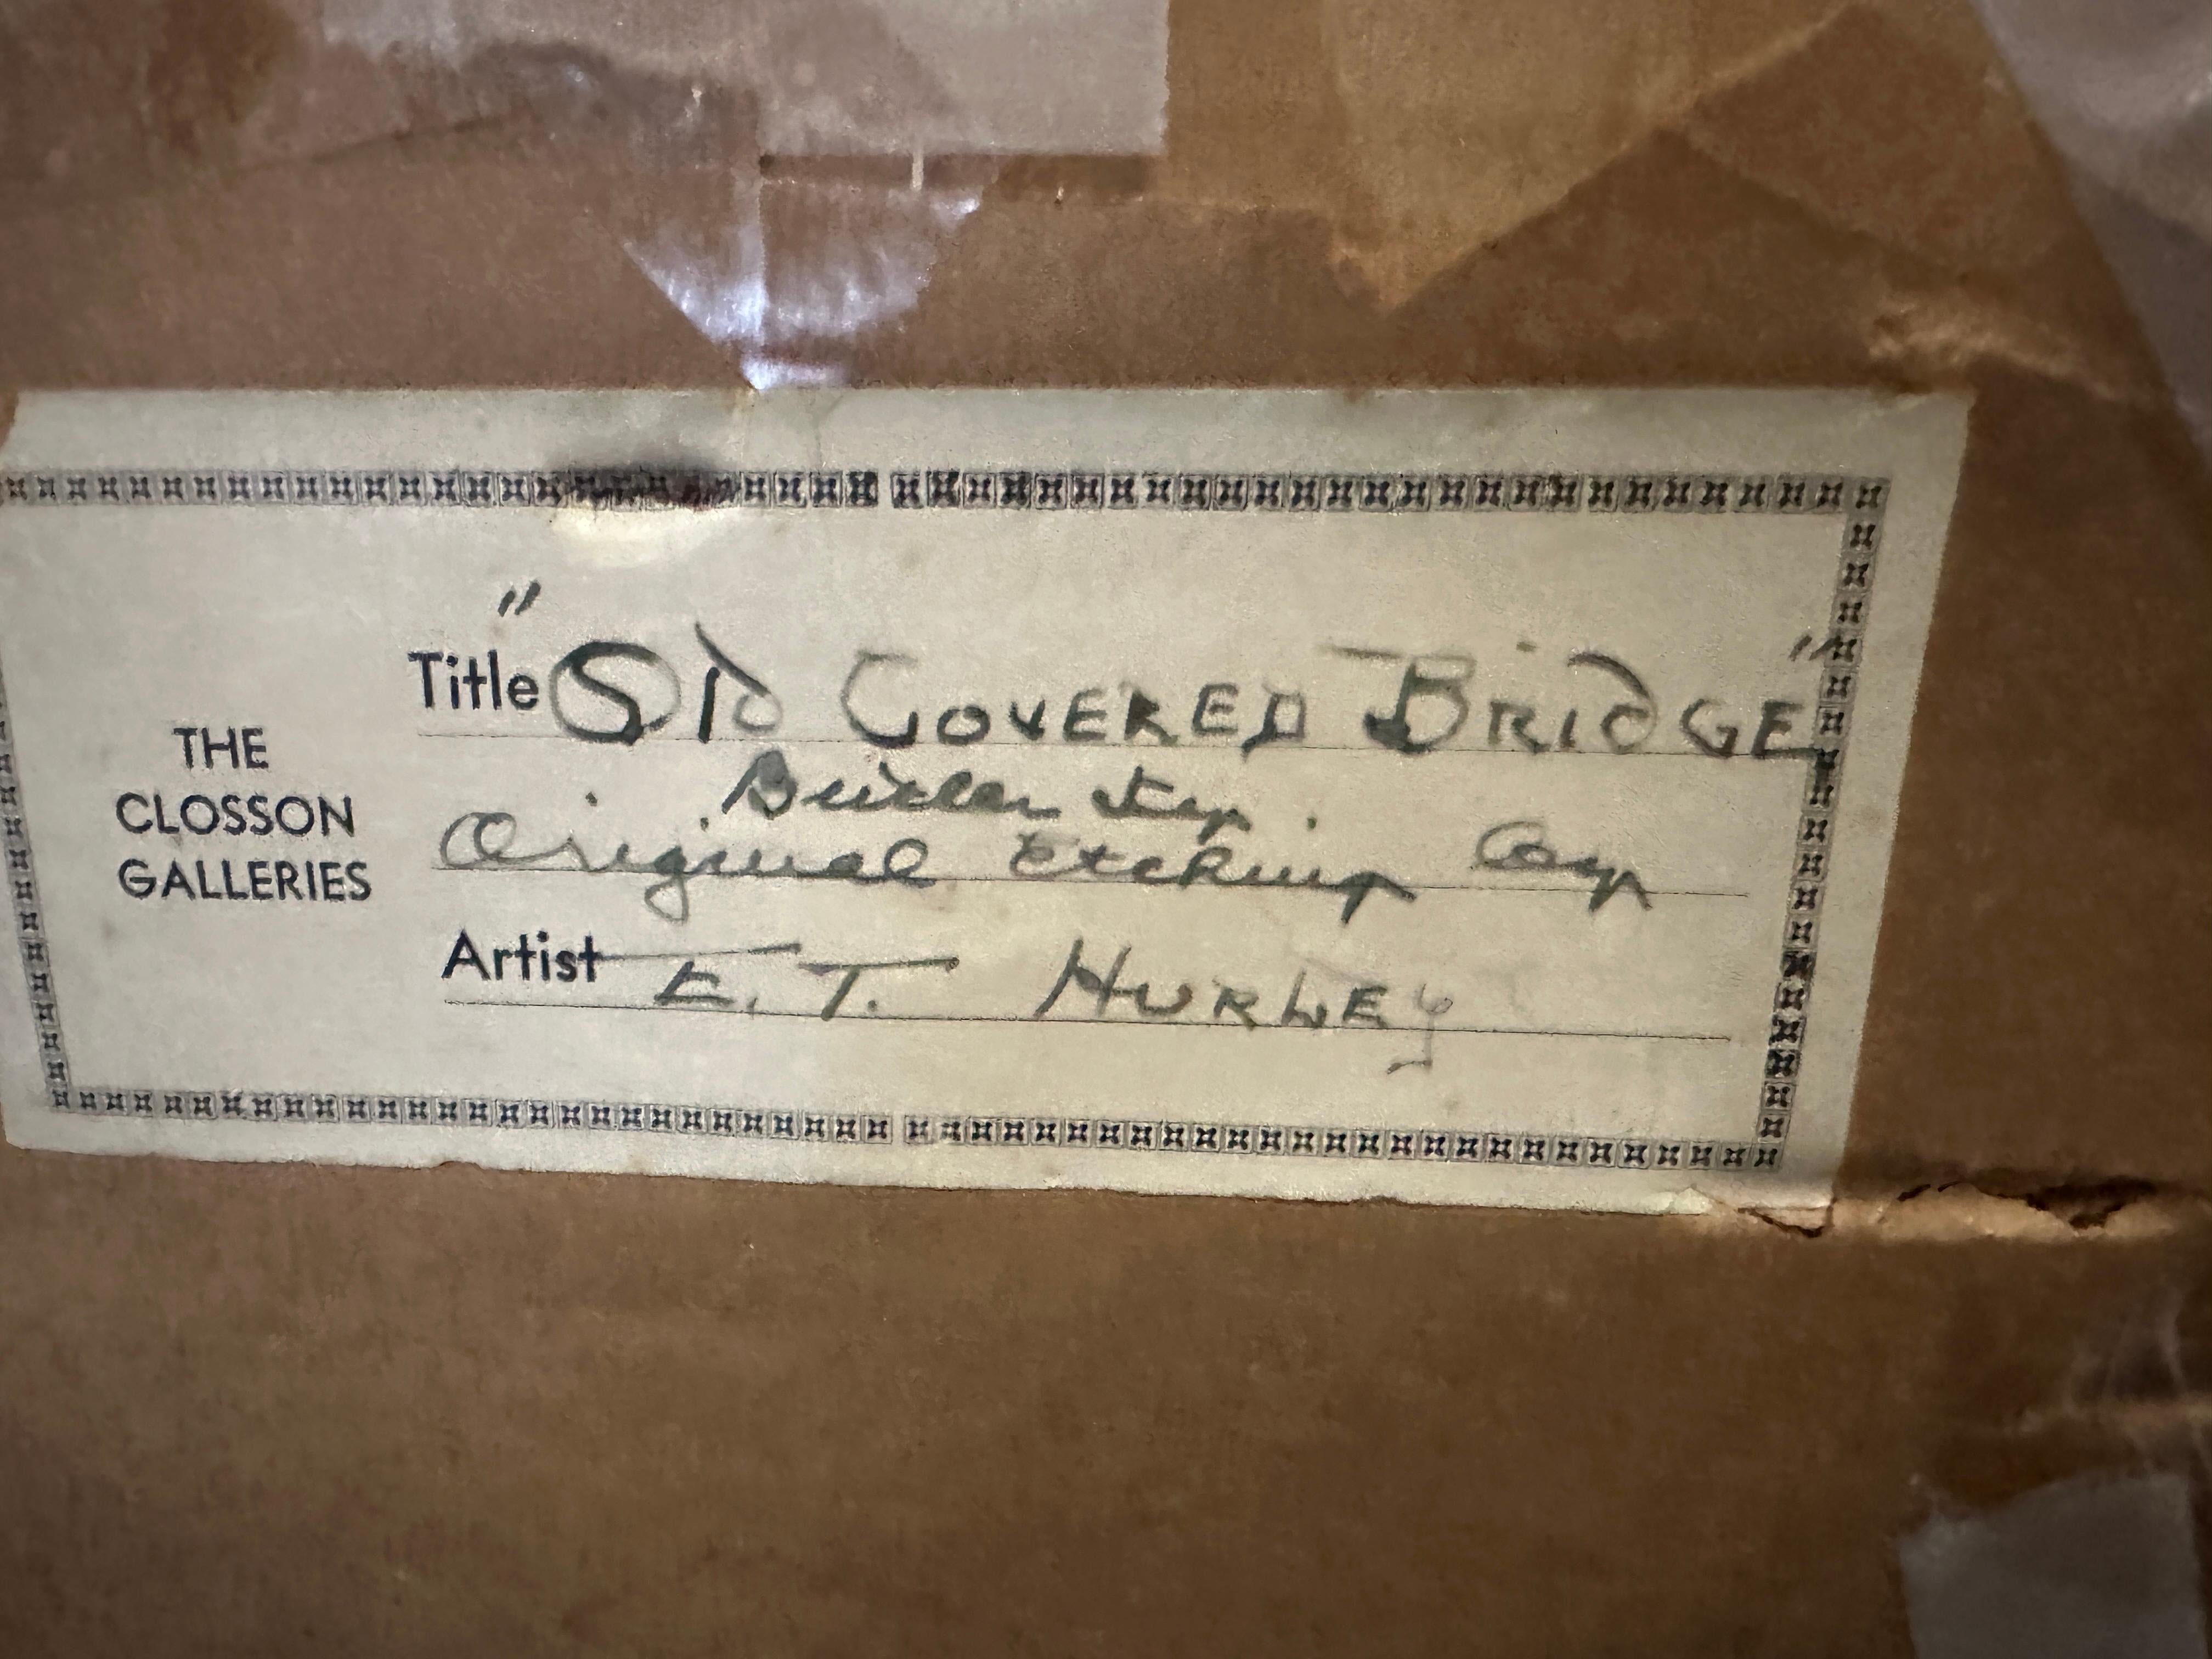 THE
CLOSSON
GALLERIES
Title "Old COVERED BRIdGE"
Original Etching
Artist E. T. HURLEy